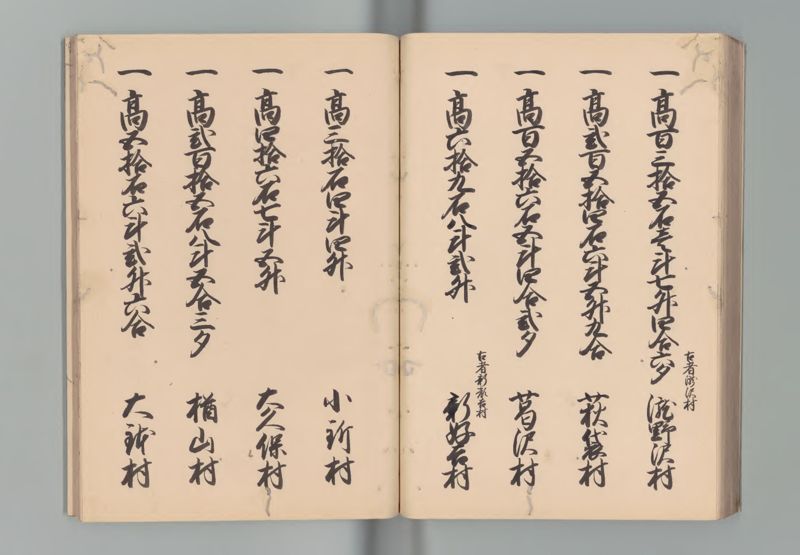 一 高百三拾五石壱斗七升四合六夕 古者滝沢村 滝野沢村
一 高弐百五拾四石六斗五升九合 萩袋村
一 高百五拾六石五斗四合弐夕 菖沢村
一 高六拾九石八斗弐升 古者新 村 新好 村
一 高三拾石四斗四升 小新村
一 高四拾六石七斗五升 大久保村
一 高弐百拾五石八斗五合三夕 楢山村
一 高五拾石六斗弐升六合 大 村